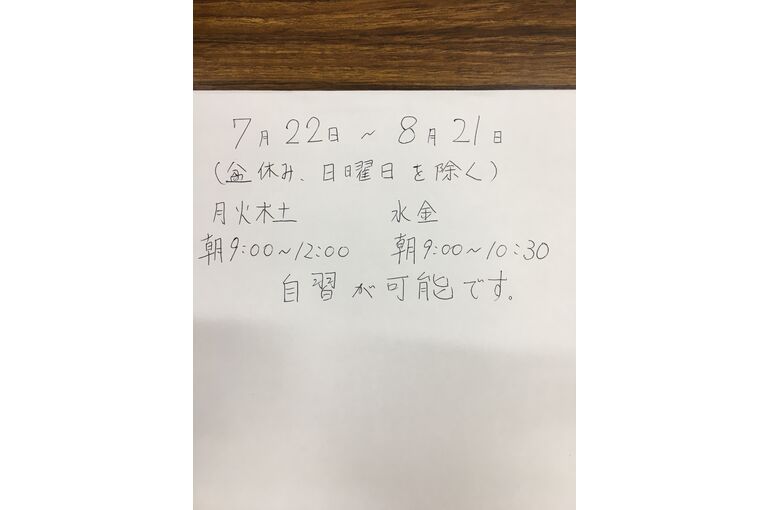 7月22日～8月21日
(盆休み、日曜日を除く)
月火木土 水金
朝9:00～12:00 朝9:00～10:30
自習が可能です。